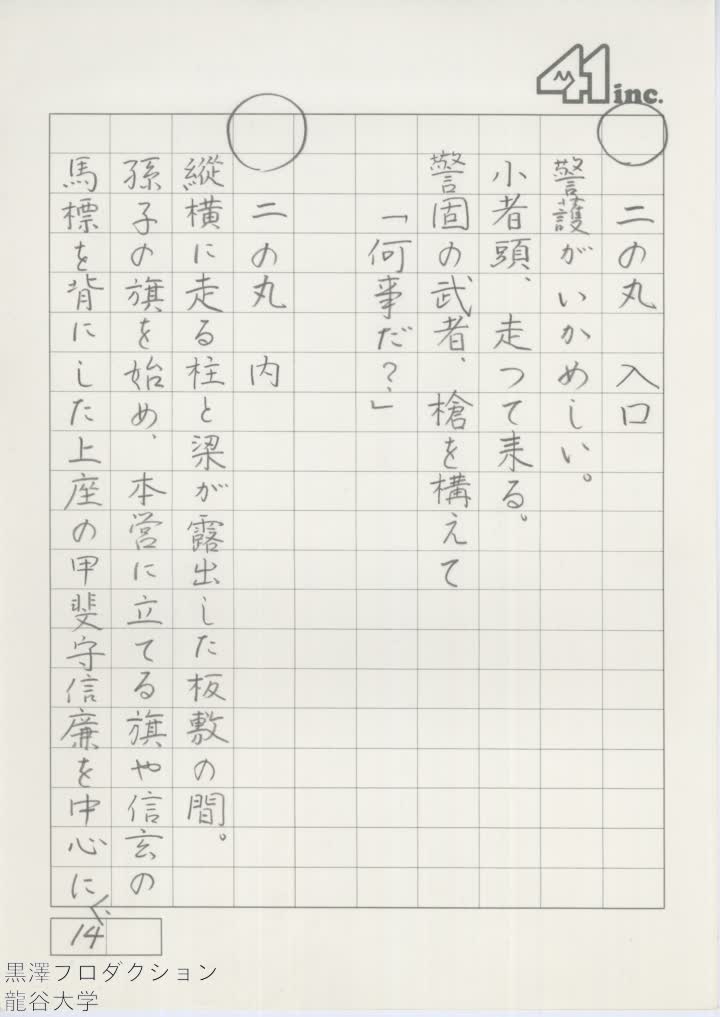 41 inc.
○ 二の丸 入口
警護がいかめしい。
小者頭、走つて来る。
警固の武者、槍を構えて
「何事だ?」
○ 二の丸 内
縦横に走る柱と梁が露出した板敷の間。
孫子の旗を始め、本営に立てる旗や信玄の
馬標を背にした上座の甲斐守信廉を中心に
14
黒澤フロダクション
龍谷大学